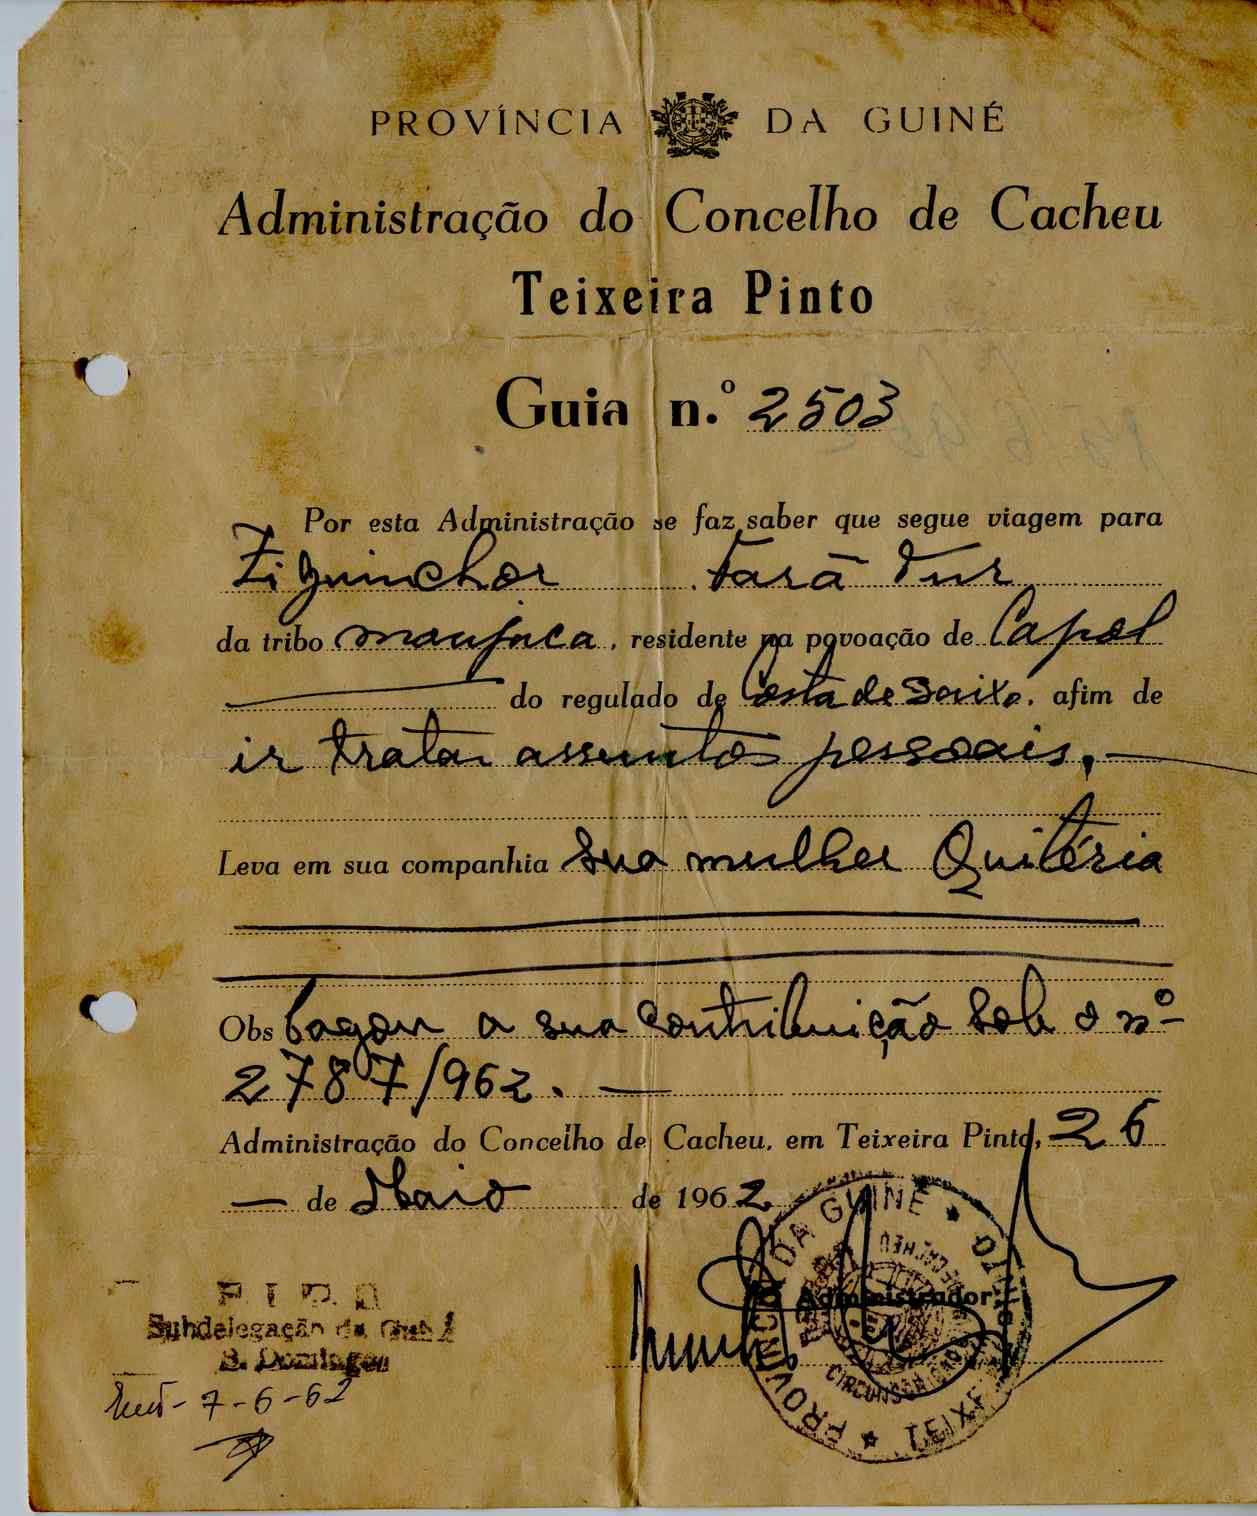 PROVÍNCIA DA GUINÉ
Administração do Concelho de Cacheu
Teixeira Pinto
Guia n.º 2503
Por esta Administração se faz saber que segue viagem para
Ziguinchor Fará Tur
da tribo manjaca, residente na povoação de Capol
do regulado de Costa de Baixo, afim de
ir tratar assuntos pessoais, —
Leva em sua companhia sua mulher Quitéria
Obs Pagou a sua contribuição sob o nº
2787/962. —
Administração do Concelho de Cacheu, em Teixeira Pinto, 26
— de Maio de 1962
O Administrador,
PROVÍNCIA DA GUINÉ
P. I. D. E.
Subdelegação da Guiné
S. Domingos
7-6-62